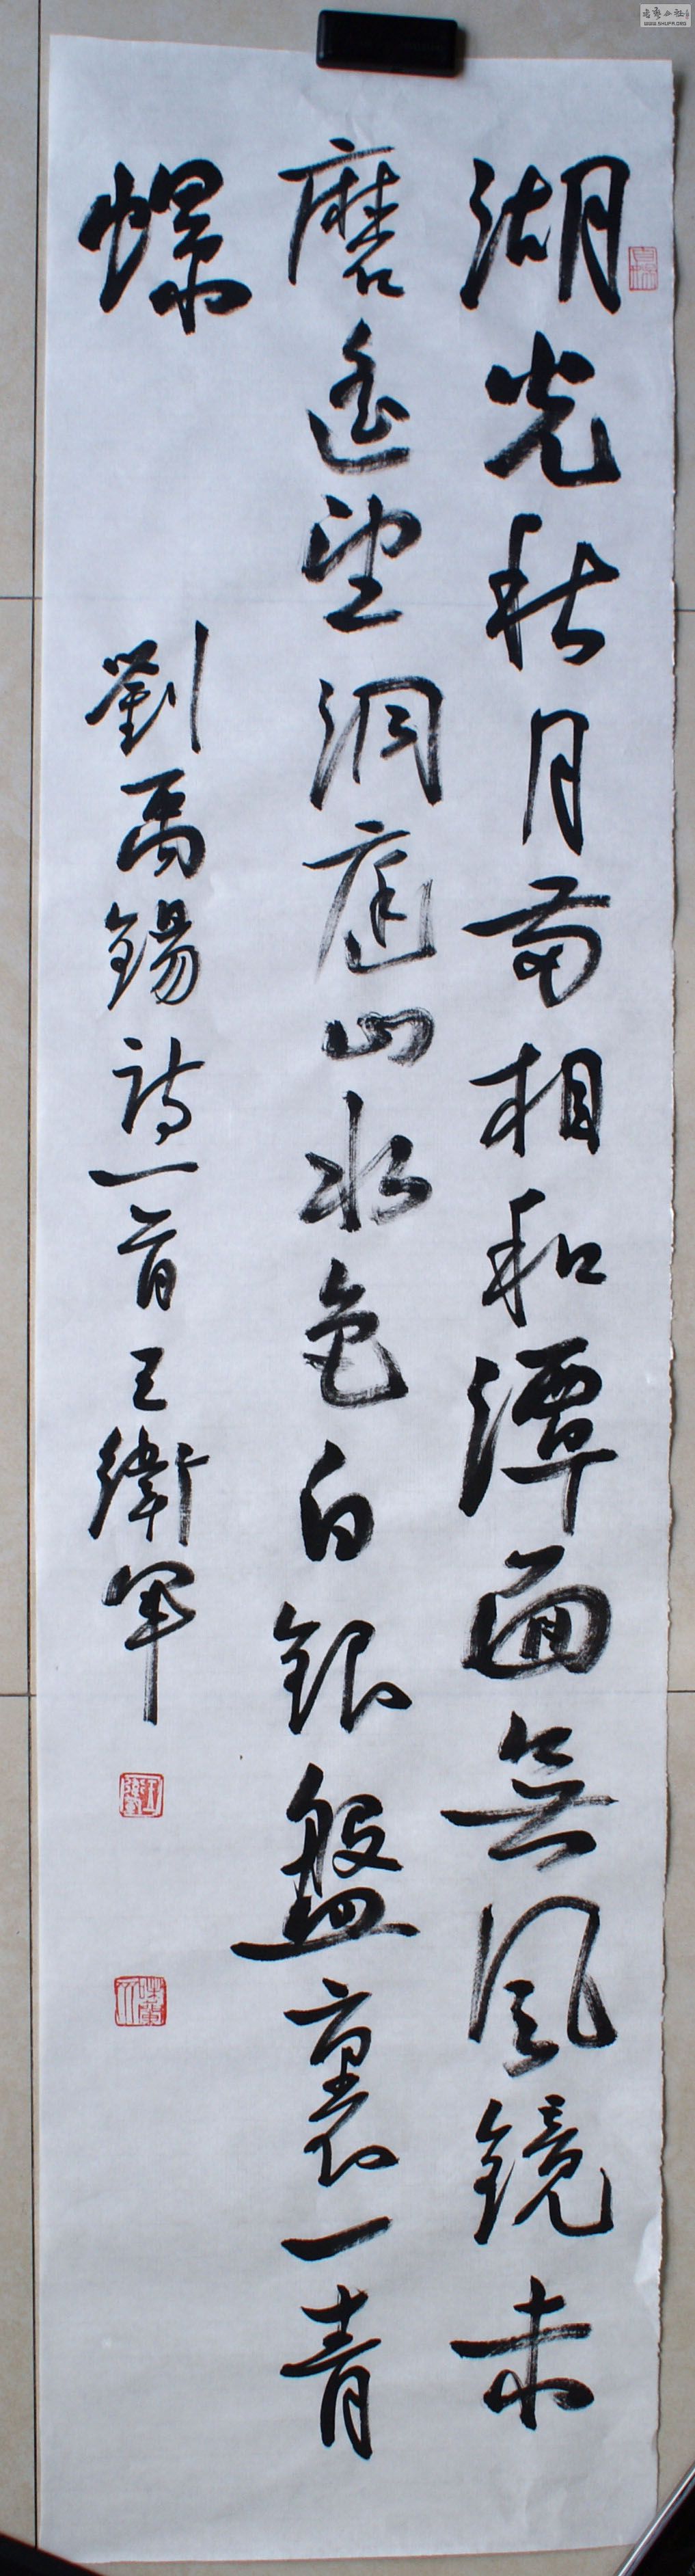 湖光秋月兩相和潭面無風鏡未
磨遙望洞庭山水色白銀盤裏一青
螺
劉禹錫詩一首王衛軍
WWW.SHUFA.ORG